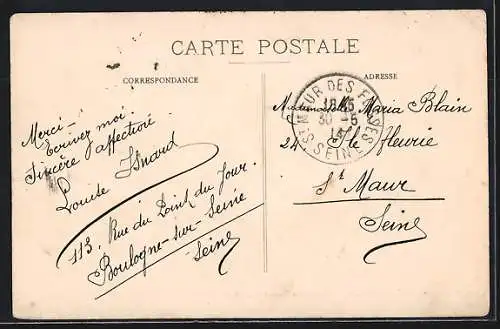 CARTE POSTALE
CORRESPONDANCE
Merci -
Ecrivez moi.
Sincère affection
Louise Isnard
113. Rue du Point du Jour.
Boulogne-sur-Seine
Seine
ADRESSE
ST MAUR DES FOSSÉS
30 - 5
14
SEINE
Mademoiselle Maria Blain
Ile fleurie
St Maur
Seine